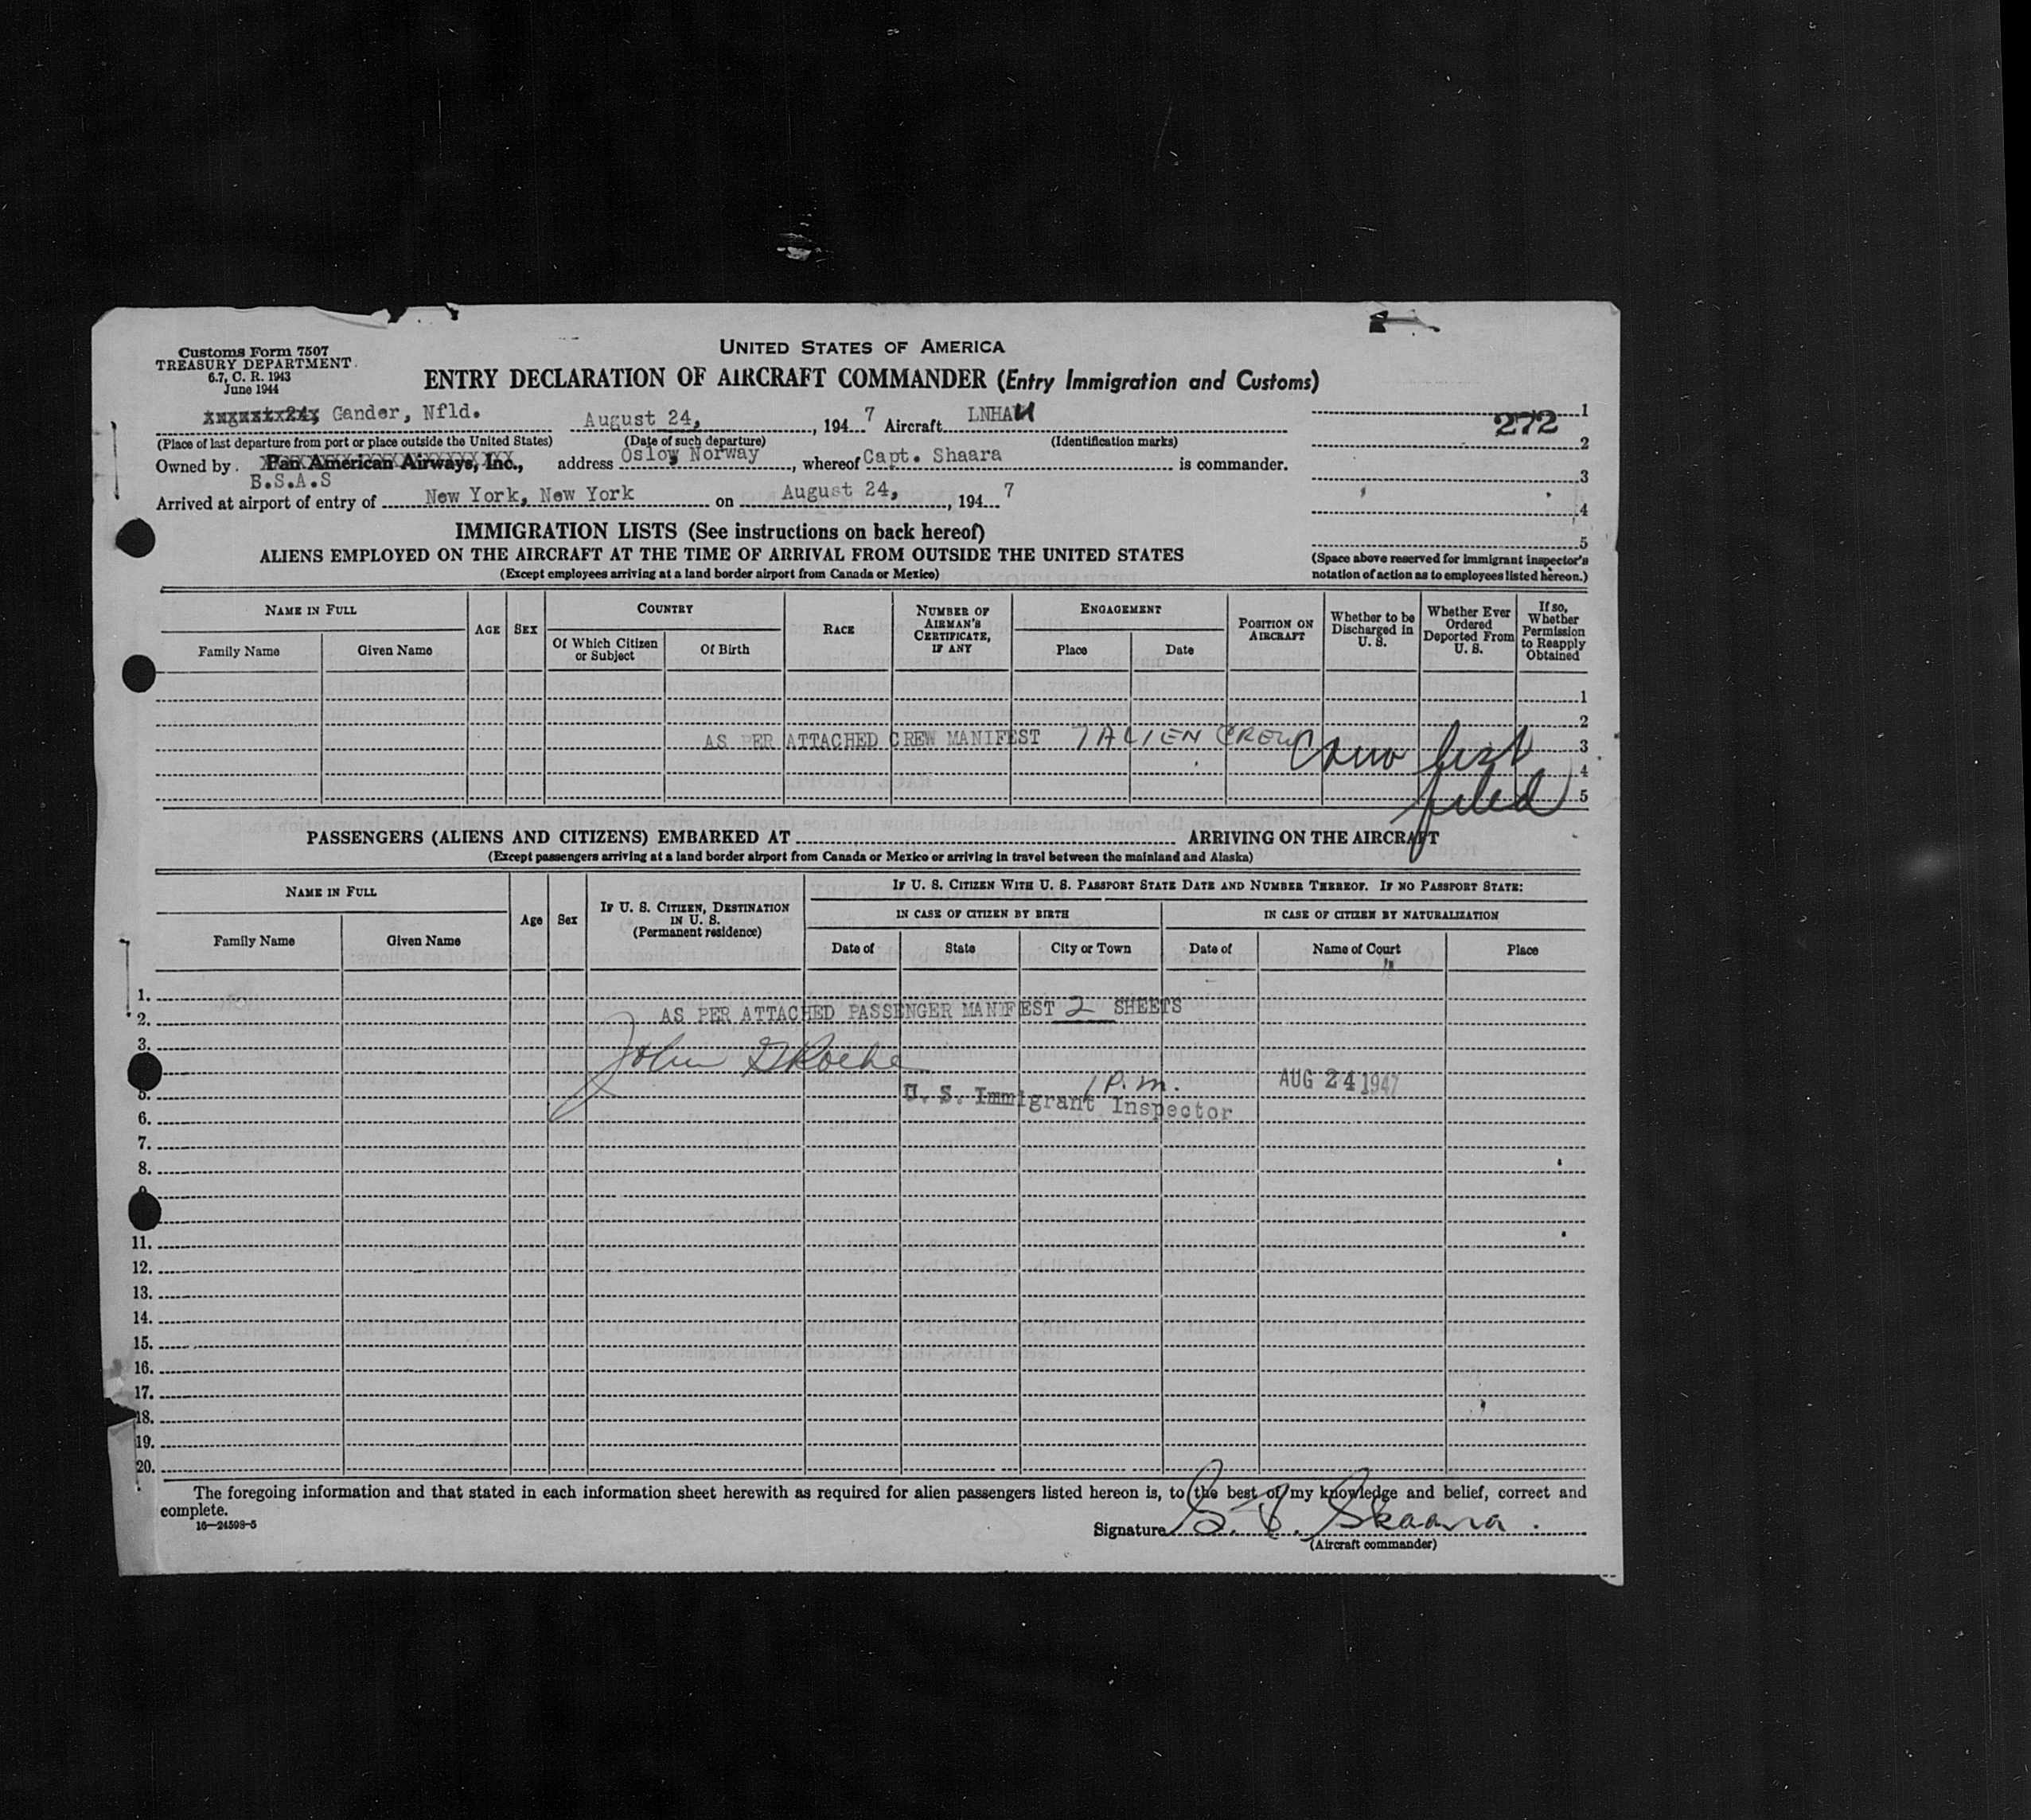 Customs Form 7507
TREASURY DEPARTMENT
6.7, C. R. 1943
June 1944
UNITED STATES OF AMERICA
ENTRY DECLARATION OF AIRCRAFT COMMANDER (Entry Immigration and Customs)
August 24, Gander, Nfld. August 24, , 194 7 Aircraft LNHAU
(Place of last departure from port or place outside the United States) (Date of such departure) (Identification marks)
Owned by Pan American Airways, Inc., address Oslow Norway , whereof Capt. Shaara is commander.
B.S.A.S
Arrived at airport of entry of New York, New York on August 24, , 194 7
1
272
2
3
4
5
(Space above reserved for immigrant inspector's
notation of action as to employees listed hereon.)
IMMIGRATION LISTS (See instructions on back hereof)
ALIENS EMPLOYED ON THE AIRCRAFT AT THE TIME OF ARRIVAL FROM OUTSIDE THE UNITED STATES
(Except employees arriving at a land border airport from Canada or Mexico)
NAME IN FULL AGE SEX COUNTRY RACE NUMBER OF AIRMAN'S CERTIFICATE, IF ANY ENGAGEMENT POSITION ON AIRCRAFT Whether to be Discharged in U. S. Whether Ever Ordered Deported From U. S. If so, Whether Permission to Reapply Obtained
Family Name Given Name Of Which Citizen or Subject Of Birth Place Date
1
2
AS PER ATTACHED CREW MANIFEST 7 ALIEN CREW Crew list 3
4
filed 5
PASSENGERS (ALIENS AND CITIZENS) EMBARKED AT ARRIVING ON THE AIRCRAFT
(Except passengers arriving at a land border airport from Canada or Mexico or arriving in travel between the mainland and Alaska)
NAME IN FULL Age Sex IF U. S. CITIZEN, DESTINATION IN U. S. (Permanent residence) IF U. S. CITIZEN WITH U. S. PASSPORT STATE DATE AND NUMBER THEREOF. IF NO PASSPORT STATE:
IN CASE OF CITIZEN BY BIRTH IN CASE OF CITIZEN BY NATURALIZATION
Family Name Given Name Date of State City or Town Date of Name of Court Place
1.
AS PER ATTACHED PASSENGER MANIFEST 2 SHEETS
2.
3.
John G Roche
1 P.m. AUG 24 1947
5.
U. S. Immigrant Inspector
6.
7.
8.
11.
12.
13.
14.
15.
16.
17.
18.
19.
20.
The foregoing information and that stated in each information sheet herewith as required for alien passengers listed hereon is, to the best of my knowledge and belief, correct and
complete.
16—24598-5
Signature Skaara
(Aircraft commander)